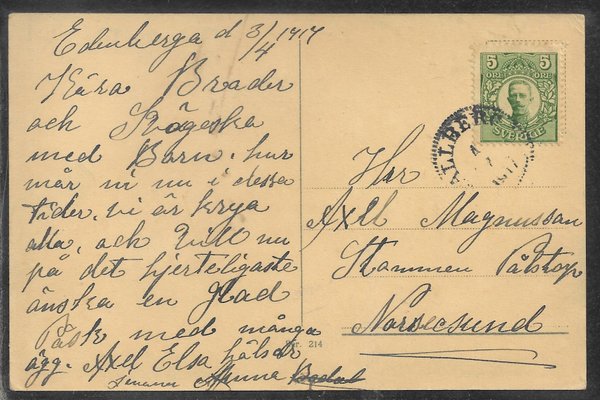 Edenberga d 3/4 1917
Kära Broder
och Svägerska
med Barn. hur
mår ni nu i dessa
tider, vi är krya
alla, och Vill nu
på det hjerteligaste
önska en Glad
Påsk med många
ägg. Axel Elsa hälsar
Anna
5 5
ÖRE ÖRE
SVERIGE
1917
Herr
Axel Magnusson
Stammen Pålstorp
Nordesund
Ser. 214